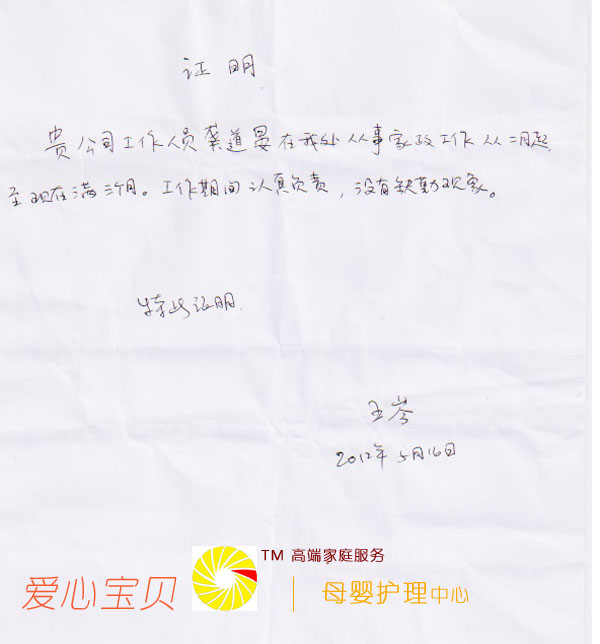 证明
贵公司工作人员龚道晏在我处从事家政工作从二月起
至现在满三个月。工作期间认真负责,没有缺勤现象。
特此证明.
王岑
2012年5月16日
TM 高端家庭服务
爱心宝贝
母婴护理中心